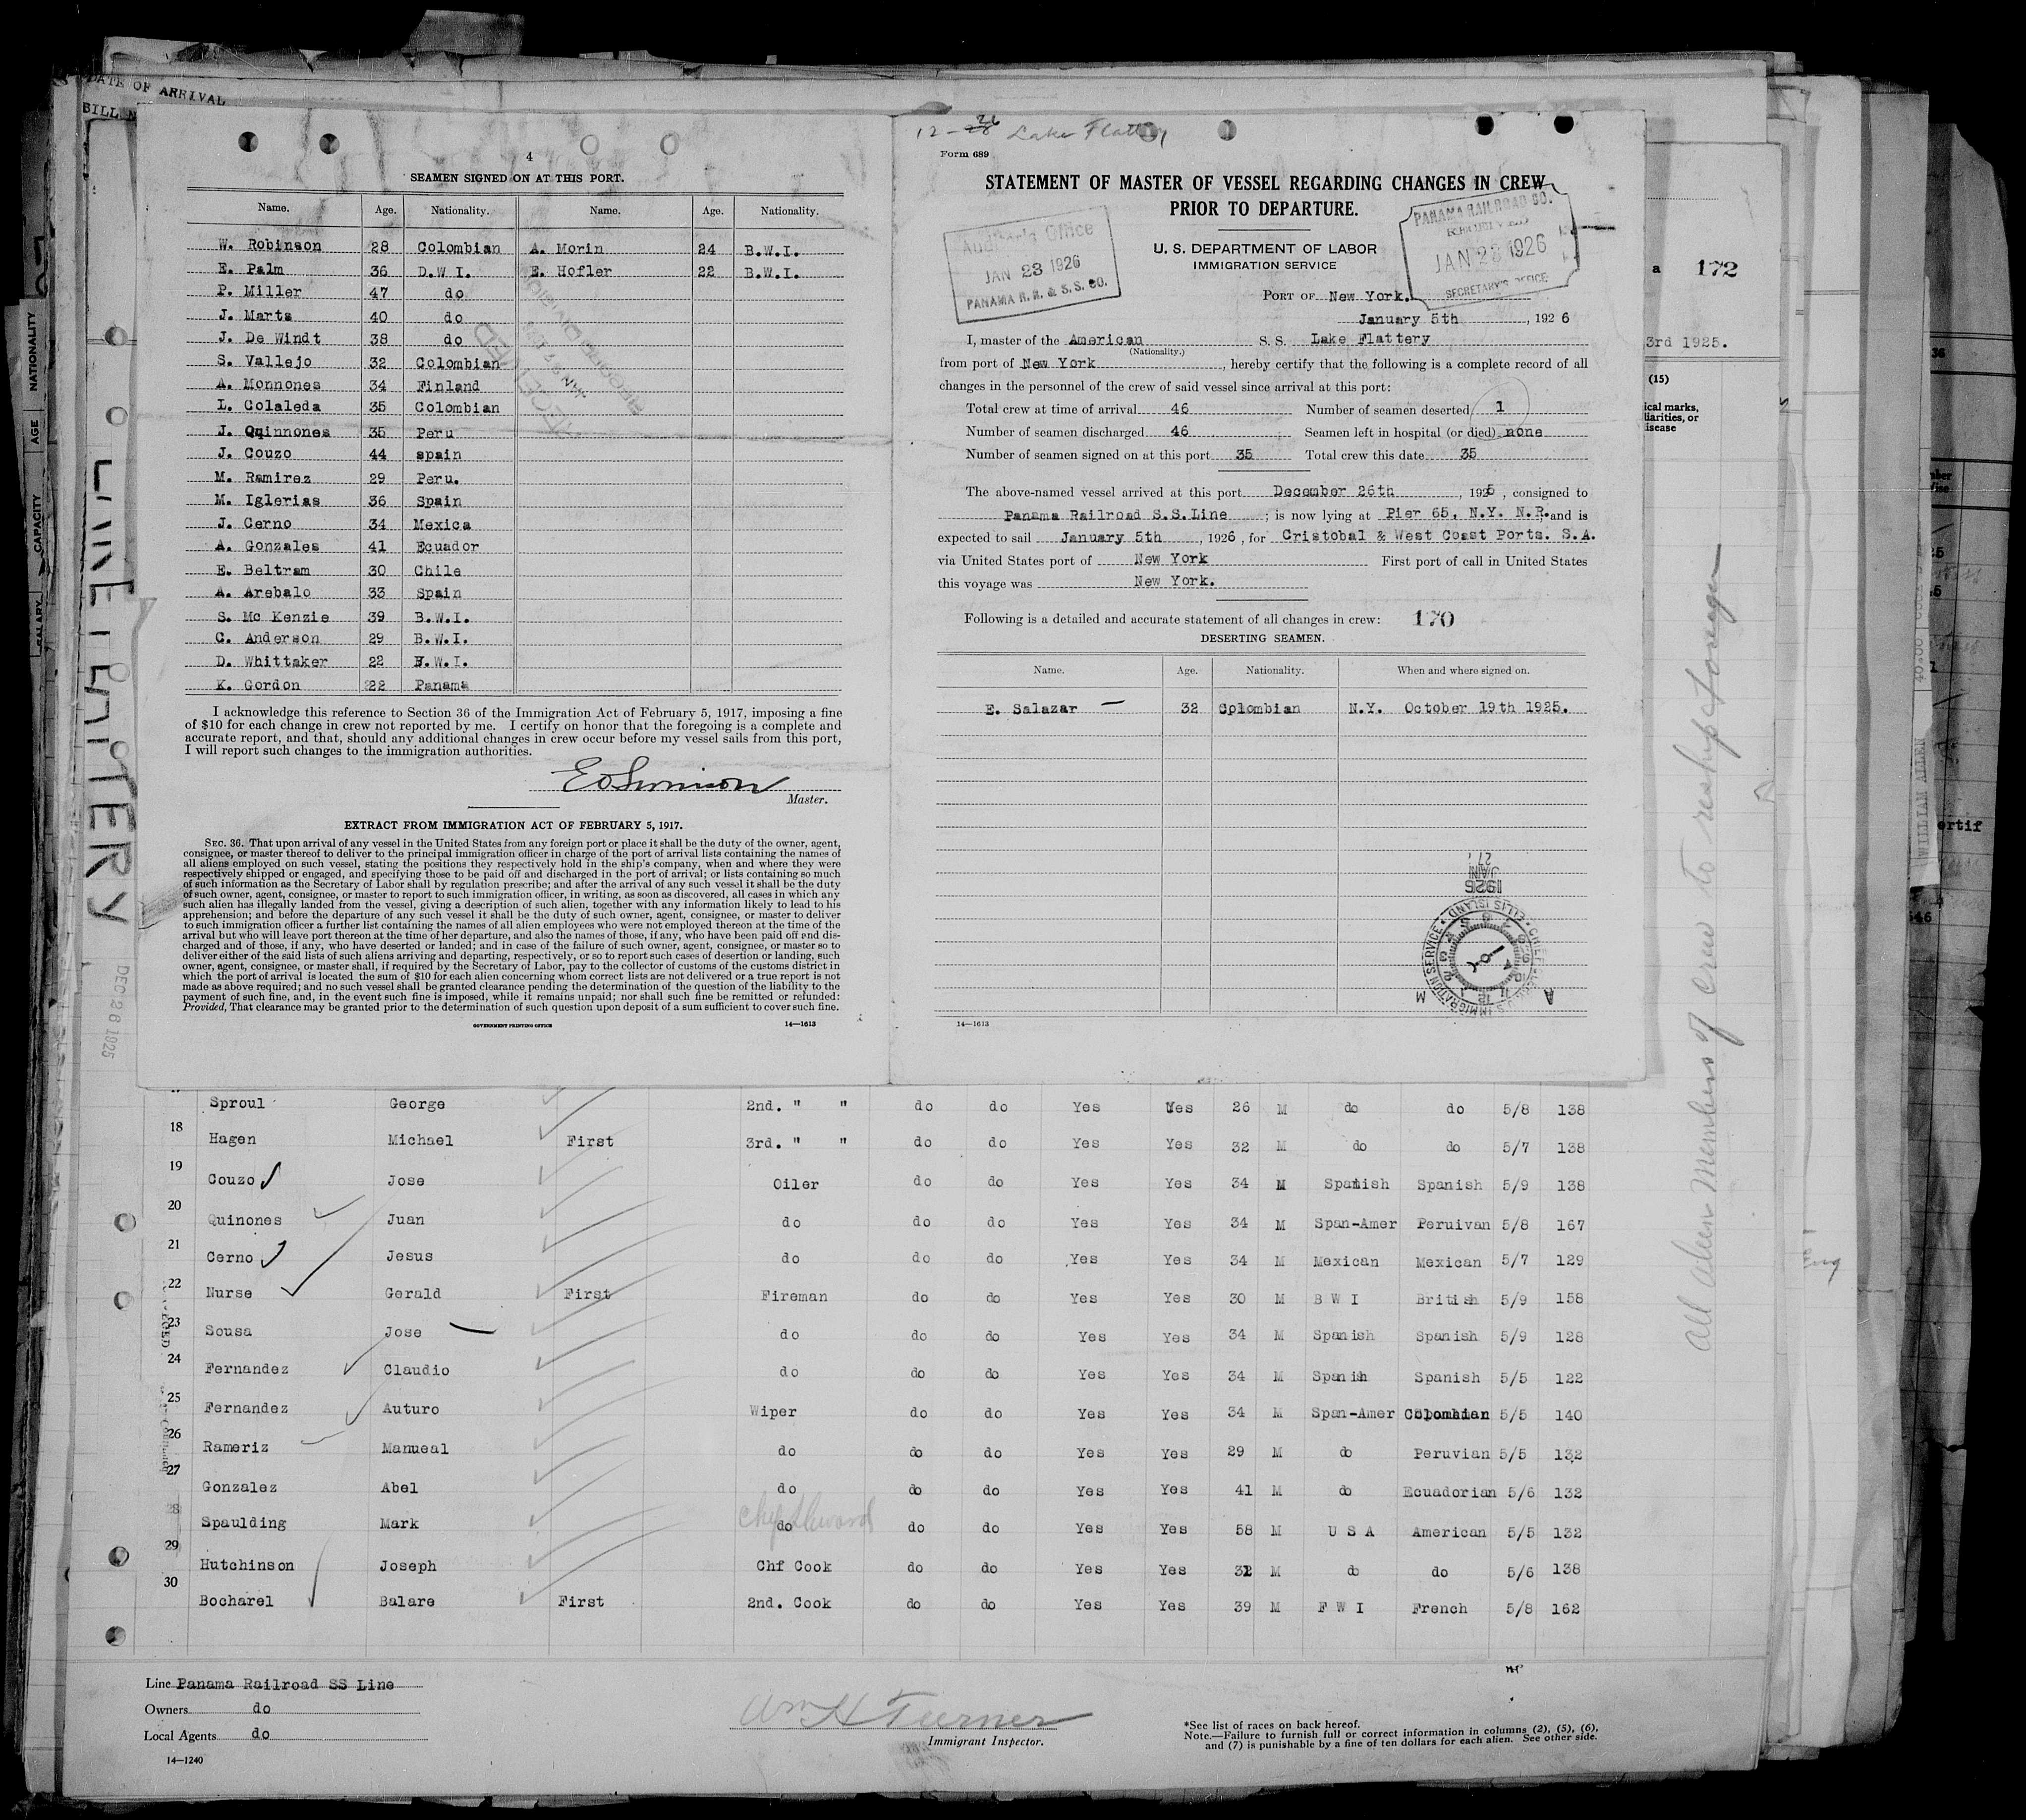 DATE OF ARRIVAL
BILL N
LAKE FLATTERY
DEC 26 1925
NATIONALITY
AGE
CAPACITY
SALARY
4
SEAMEN SIGNED ON AT THIS PORT.
Name. Age. Nationality. Name. Age. Nationality.
W. Robinson 28 Colombian A. Morin 24 B.W.I.
E. Palm 36 D.W I. E. Hofler 22 B.W.I.
P. Miller 47 do
J. Marts 40 do
J. De Windt 38 do
S. Vallejo 32 Colombian
A. Monnones 34 Finland
L. Colaleda 35 Colombian
J. Quinnones 35 Peru
J. Couzo 44 spain
M. Ramirez 29 Peru.
M. Iglerias 36 Spain
J. Cerno 34 Mexica
A. Gonzales 41 Ecuador
E. Beltram 30 Chile
A. Arebalo 33 Spain
S. Mc Kenzie 39 B.W.I.
C. Anderson 29 B.W.I.
D. Whittaker 22 F.W.I.
K. Gordon 22 Panama
I acknowledge this reference to Section 36 of the Immigration Act of February 5, 1917, imposing a fine
of $10 for each change in crew not reported by me. I certify on honor that the foregoing is a complete and
accurate report, and that, should any additional changes in crew occur before my vessel sails from this port,
I will report such changes to the immigration authorities.
Master.
EXTRACT FROM IMMIGRATION ACT OF FEBRUARY 5, 1917.
SEC. 36. That upon arrival of any vessel in the United States from any foreign port or place it shall be the duty of the owner, agent,
consignee, or master thereof to deliver to the principal immigration officer in charge of the port of arrival lists containing the names of
all aliens employed on such vessel, stating the positions they respectively hold in the ship's company, when and where they were
respectively shipped or engaged, and specifying those to be paid off and discharged in the port of arrival; or lists containing so much
of such information as the Secretary of Labor shall by regulation prescribe; and after the arrival of any such vessel it shall be the duty
of such owner, agent, consignee, or master to report to such immigration officer, in writing, as soon as discovered, all cases in which any
such alien has illegally landed from the vessel, giving a description of such alien, together with any information likely to lead to his
apprehension; and before the departure of any such vessel it shall be the duty of such owner, agent, consignee, or master to deliver
to such immigration officer a further list containing the names of all alien employees who were not employed thereon at the time of the
arrival but who will leave port thereon at the time of her departure, and also the names of those, if any, who have been paid off and dis-
charged and of those, if any, who have deserted or landed; and in case of the failure of such owner, agent, consignee, or master so to
deliver either of the said lists of such aliens arriving and departing, respectively, or so to report such cases of desertion or landing, such
owner, agent, consignee, or master shall, if required by the Secretary of Labor, pay to the collector of customs of the customs district in
which the port of arrival is located the sum of $10 for each alien concerning whom correct lists are not delivered or a true report is not
made as above required; and no such vessel shall be granted clearance pending the determination of the question of the liability to the
payment of such fine, and, in the event such fine is imposed, while it remains unpaid; nor shall such fine be remitted or refunded:
Provided, That clearance may be granted prior to the determination of such question upon deposit of a sum sufficient to cover such fine.
GOVERNMENT PRINTING OFFICE 14—1613
12-26 Lake Flattery
Form 689
STATEMENT OF MASTER OF VESSEL REGARDING CHANGES IN CREW
PRIOR TO DEPARTURE.
U. S. DEPARTMENT OF LABOR
IMMIGRATION SERVICE
Auditor's Office
JAN 23 1926
PANAMA R. R. & S. S. CO.
PANAMA RAILROAD CO.
JAN 23 1926
SECRETARY'S OFFICE
PORT OF New York.
January 5th, 1926
I, master of the American S. S. Lake Flattery
(Nationality.)
from port of New York, hereby certify that the following is a complete record of all
changes in the personnel of the crew of said vessel since arrival at this port:
Total crew at time of arrival 46 Number of seamen deserted 1
Number of seamen discharged 46 Seamen left in hospital (or died) none
Number of seamen signed on at this port 35 Total crew this date 35
The above-named vessel arrived at this port December 26th, 1925, consigned to
Panama Railroad S.S.Line; is now lying at Pier 65, N.Y. N.R. and is
expected to sail January 5th, 1926, for Cristobal & West Coast Ports. S.A.
via United States port of New York First port of call in United States
this voyage was New York.
Following is a detailed and accurate statement of all changes in crew: 170
DESERTING SEAMEN.
Name. Age. Nationality. When and where signed on.
E. Salazar 32 Colombian N.Y. October 19th 1925.
27
JAN
1926
14—1613
a 172
3rd 1925.
(15)
ical marks,
liarities, or
isease
All Alien Members of Crew to reship foreign
WILLIAM ALLEN
ertif
Sproul George 2nd. " " do do Yes Yes 26 M do do 5/8 138
18 Hagen Michael First 3rd. " " do do Yes Yes 32 M do do 5/7 138
19 Couzo Jose Oiler do do Yes Yes 34 M Spanish Spanish 5/9 138
20 Quinones Juan do do do Yes Yes 34 M Span-Amer Peruivan 5/8 167
21 Cerno Jesus do do do Yes Yes 34 M Mexican Mexican 5/7 129
22 Nurse Gerald First Fireman do do Yes Yes 30 M B W I British 5/9 158
23 Sousa Jose do do do Yes Yes 34 M Spanish Spanish 5/9 128
24 Fernandez Claudio do do do Yes Yes 34 M Spanish Spanish 5/5 122
25 Fernandez Auturo Wiper do do Yes Yes 34 M Span-Amer Colombian 5/5 140
26 Rameriz Manueal do do do Yes Yes 29 M do Peruvian 5/5 132
27 Gonzalez Abel do do do Yes Yes 41 M do Ecuadorian 5/6 132
28 Spaulding Mark do do do Yes Yes 58 M U S A American 5/5 132
29 Hutchinson Joseph Chf Cook do do Yes Yes 32 M do do 5/6 138
30 Bocharel Balare First 2nd. Cook do do Yes Yes 39 M F W I French 5/8 162
Line Panama Railroad SS Line
Owners do
Local Agents do
14—1240
Wm H Turner
Immigrant Inspector.
*See list of races on back hereof.
Note.—Failure to furnish full or correct information in columns (2), (5), (6),
and (7) is punishable by a fine of ten dollars for each alien. See other side.